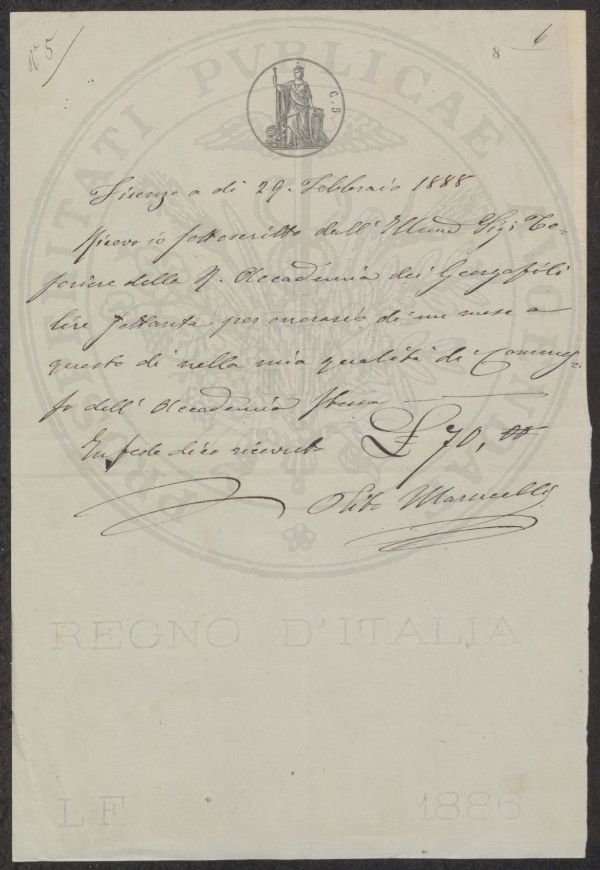 N° 5
8 6
C. 5
PROSPERITATI PVBLICAE AVGENDAE
Firenze a di 29. Febbraio 1888
Ricevo io sottoscritto dall' Illmo Sigr Te-
soriere della R. Accademia dei Georgofili
lire settanta, per onorario di un mese a
questo di nella mia qualità di Commes-
so dell' Accademia stessa
In fede dico ricevute £ 70, 00
Marucelli
REGNO D'ITALIA
L F 1886